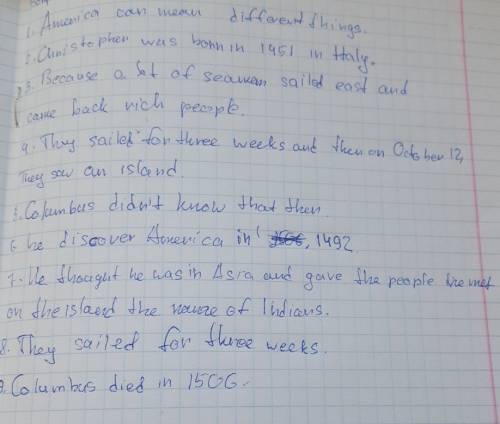 1. America can mean different things.
2. Christopher was born in 1951 in Italy.
3. Because a lot of seamen sailed east and
came back rich people.
4. They sailed for three weeks and then on October 12,
They saw an island.
5. Columbus didn't know that then.
6. he discover America in 1492.
7. He thought he was in Asia and gave the people he met
on the island the name of Indians.
8. They sailed for three weeks.
9. Columbus died in 1506.